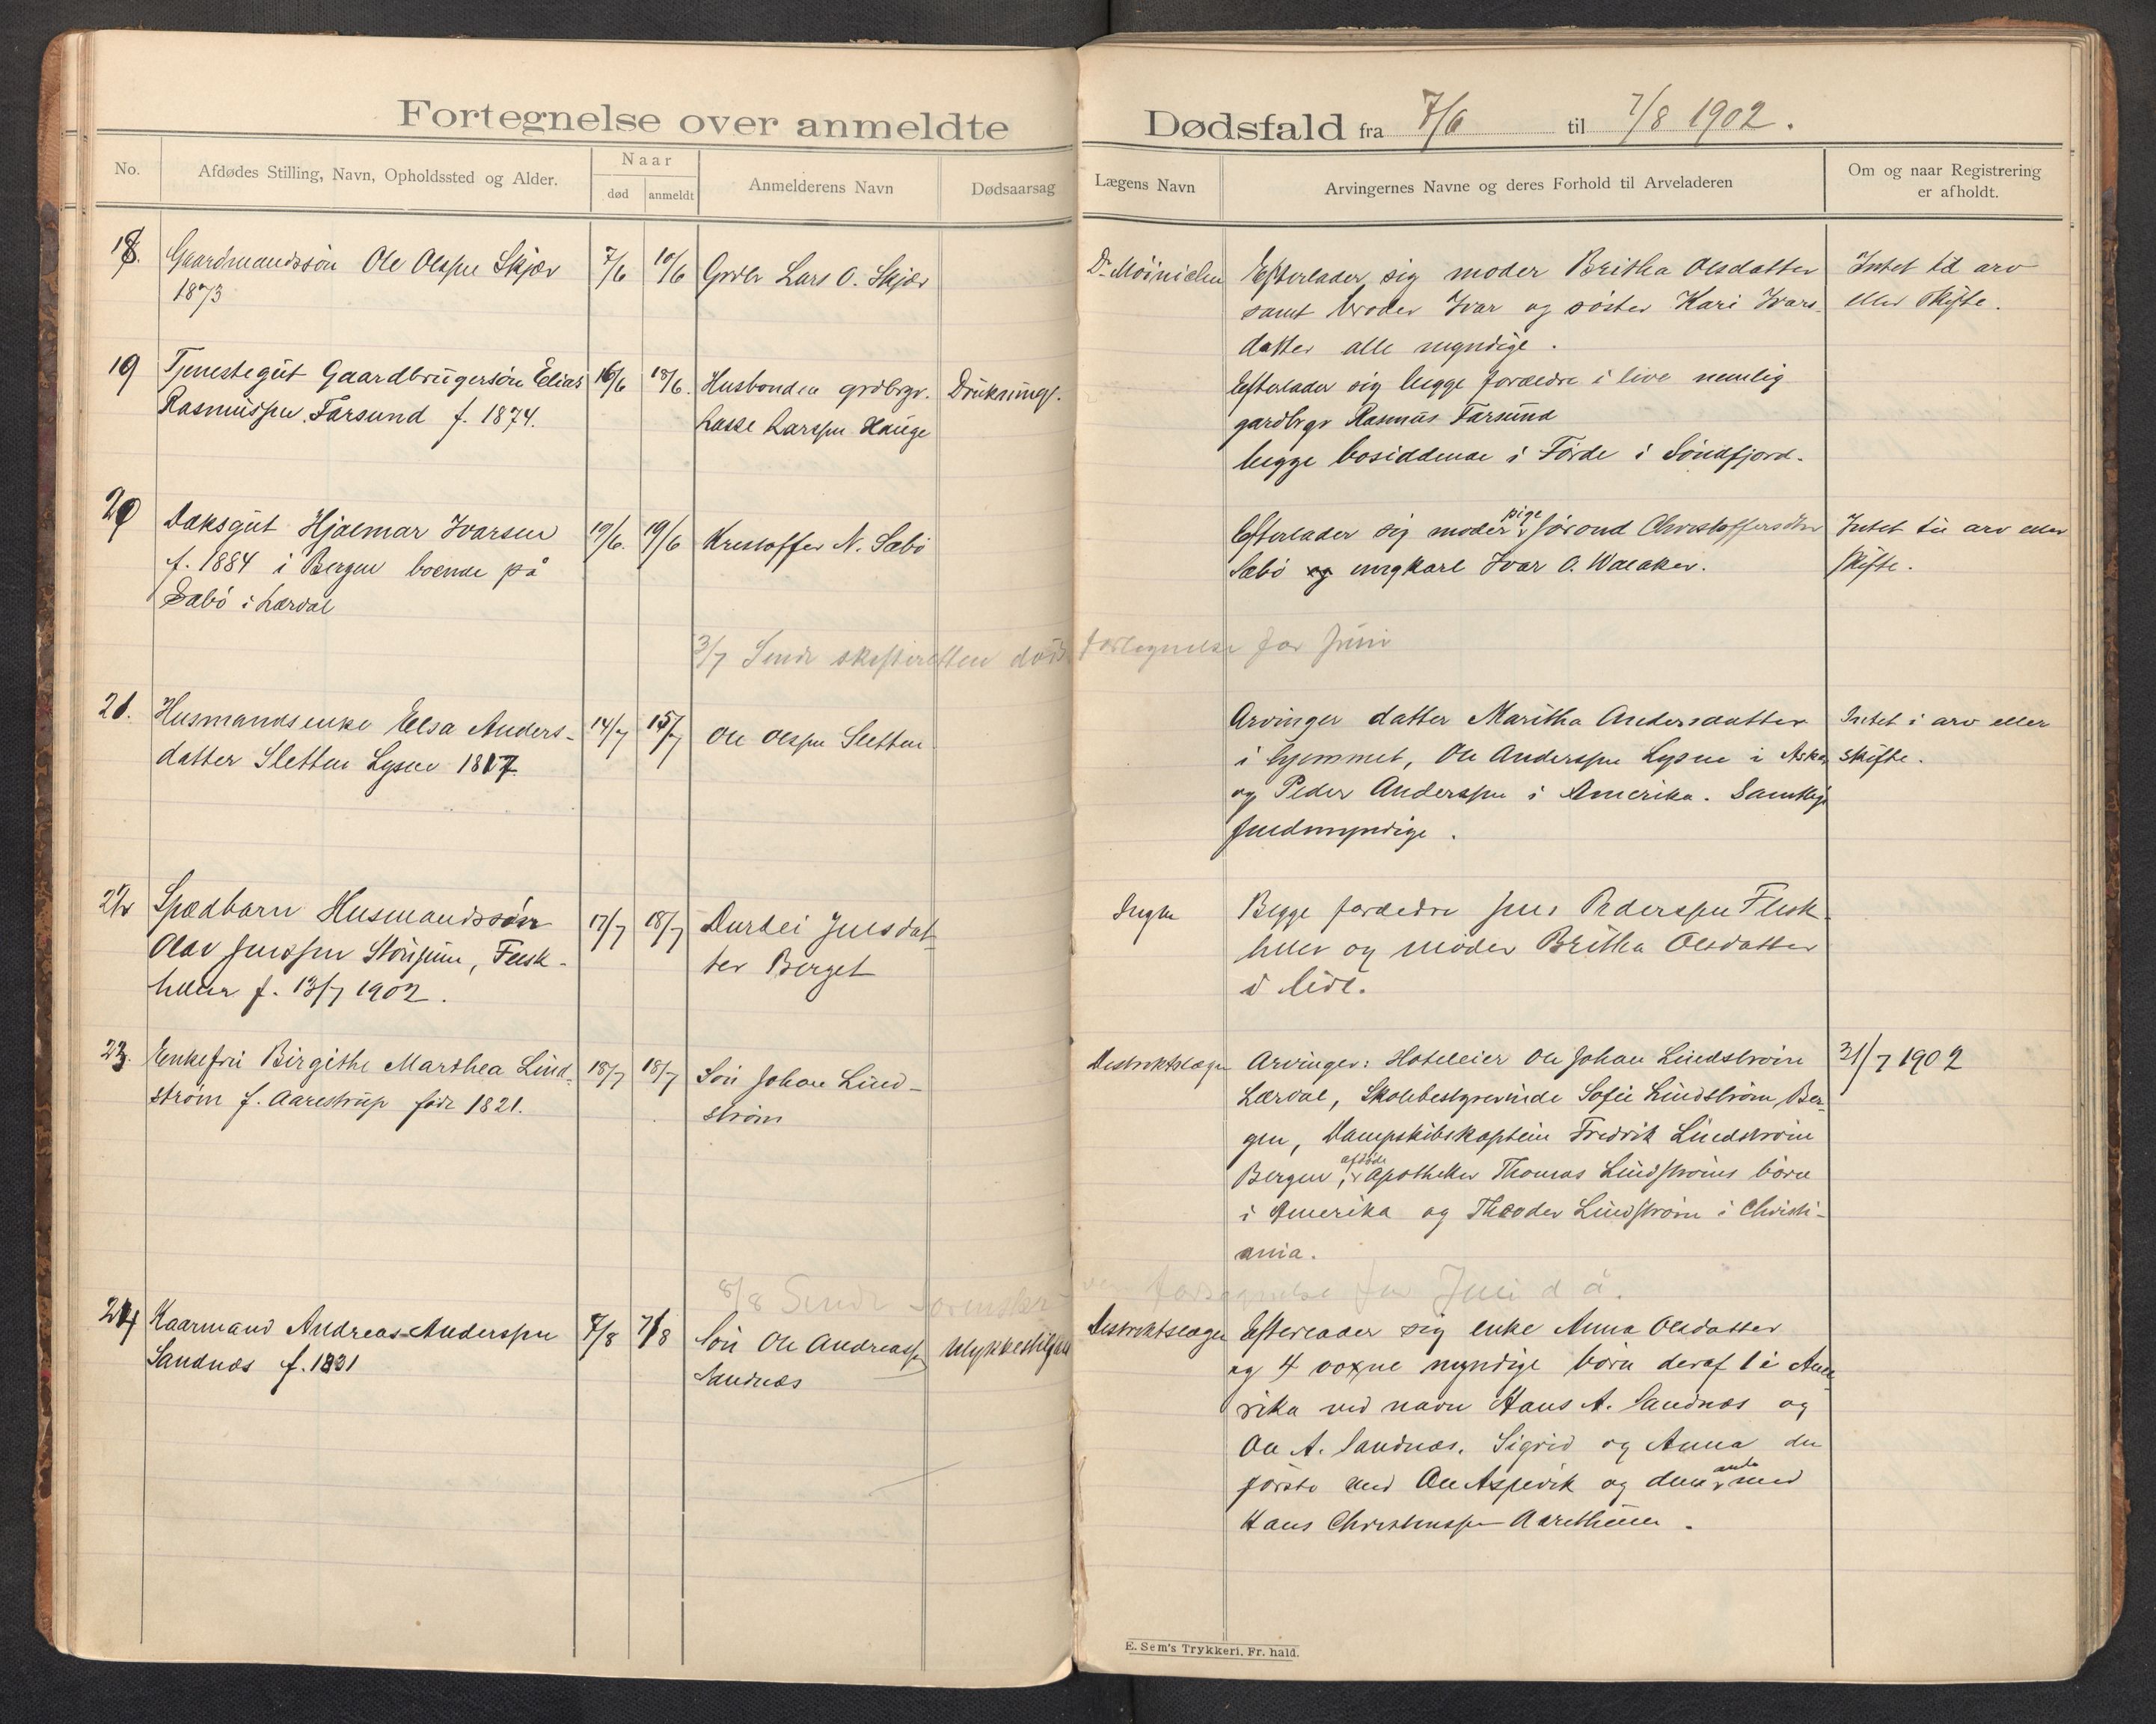 Fortegnelse over anmeldte Dødsfald fra 7/6 til 7/8 1902.
No.
Afdødes Stilling, Navn, Opholdssted og Alder.
Naar
død
anmeldt
Anmelderens Navn
Dødsaarsag
Lægens Navn
Arvingernes Navne og deres Forhold til Arveladeren
Om og naar Registrering
er afholdt.
18.
Gaardmandssön Ole Olsen Skjær
1873
7/6
10/6
Grdbr Lars O. Skjær
Dr. Möinichen
Efterlader sig moder Britha Olsdatter
samt broder Ivar og söster Kari Ivars-
datter alle myndige.
Intet til arv
eller skifte.
19
Tjenestegut Gaardbrugersön Elias
Rasmussen Farsund f. 1874.
16/6
18/6.
Husbonden grdbrgr.
Lasse Larssen Hauge
Drukning.
Efterlader sig begge forældre i live nemlig
gardbrgr Rasmus Farsund
begge bosiddende i Förde i Söndfjord.
20
Dæksgut Hjalmar Ivarsen
f. 1884 i Bergen boende på
Sæbö i Lærdal
19/6
Kristoffer N. Sæbö
Efterlader sig moder pige Jórond Christoffersdtr
Sæbö og ungkarl Ivar O. Walaker.
Intet til arv eller
skifte.
3/7 Sendt skifteretten döds fortegnelse for Juni
21.
Husmandsenke Elsa Anders-
datter Sletten Lysne 1817
14/7
15/7
Ole Olsen Sletten
Arvinger datter Maritha Andersdatter
i hjemmet, Ole Anderssen Lysne i Asker
og Peder Anderssen i Amerika. Samtlige
fuldmyndige.
Intet i arv eller
skifte.
22
Spædbarn Husmandssön
Olav Jenssen Stönjum, Flesk-
hller f. 13/7 1902.
17/7
18/7
Durdei Jensdat-
ter Berget
Ingen
Begge forældre Jens Pederssen Flesk-
hller og moder Britha Olsdatter
i live.
23.
Enkefru Birgithe Marthea Lind-
ström f. Aarestrup född 1821.
18/7
18/7
Sön Johan Lind-
ström
Distriktslægen
Arvinger: Hoteleier Ole Johan Lindström
Lærdal, Skolebestyrerinde Sofie Lindström Ber-
gen, Dampskibskaptein Fredrik Lindström
Bergen, afdöde Apotheker Thomas Lindströms börn
i Amerika og Theodor Lindström i Christi-
ania.
31/7 1902
8/8 Sendt Sorenskr. fortegnelse for Juli d å.
24
Kaarmand Andreas Anderssen
Sandnæs f. 1831
7/8
7/8
Sön Ole Andreassen
Sandnæs
Ulykkestilfælde
Distriktslægen
Efterlader sig enke Anna Olsdatter
og 4 voxne myndige börn deraf 1 i Ame-
rika ved navn Hans A. Sandnæs og
Ole A. Sandnæs. Sigrid og Anna den
förste med Ole Aspevik og den anden med
Hans Christenssen Aarethun.
E. Sem's Trykkeri, Fr. hald.